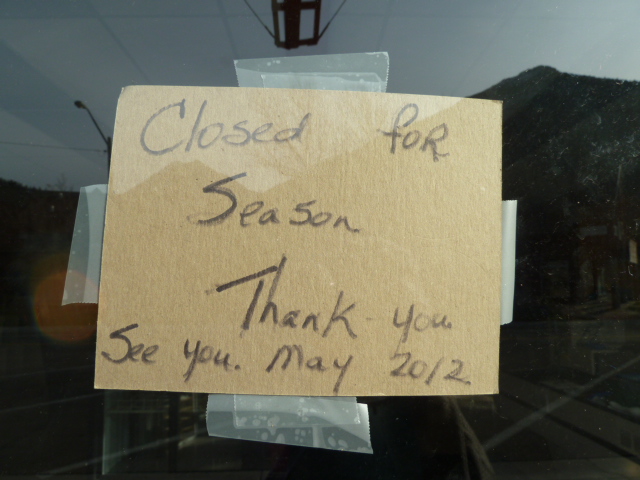 Closed for
Season
Thank-you
See you. May 2012